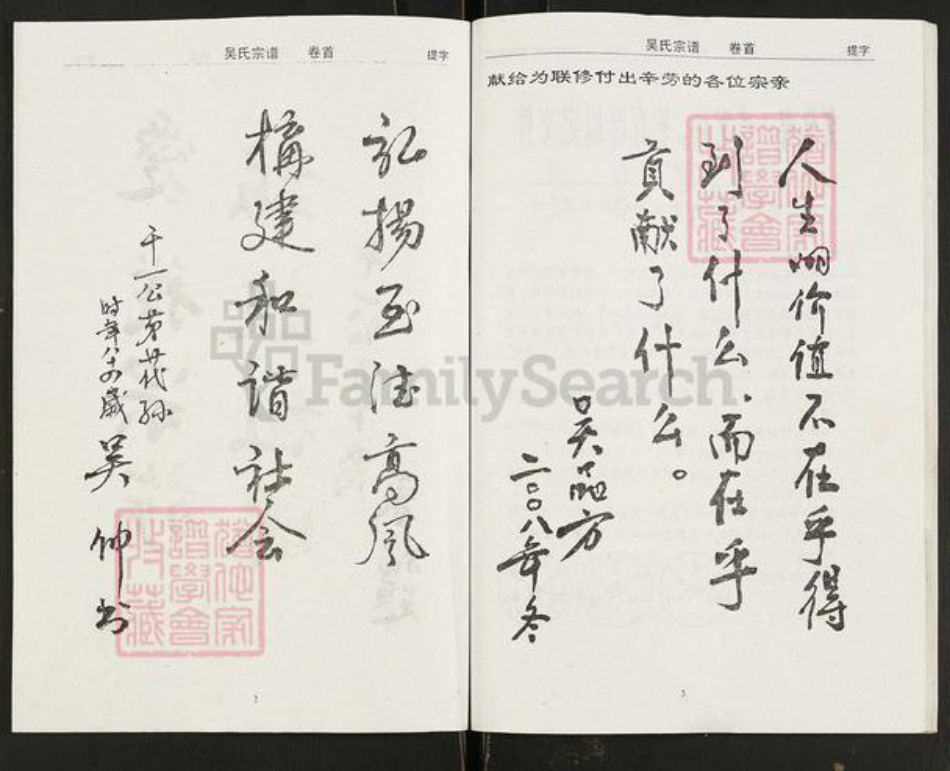 吴氏宗谱 卷首 提字
献给为联修付出辛劳的各位宗亲
人生的价值不在乎得
到了什么.而在乎
贡献了什么。
吴品方
二〇〇八年冬
3
吴氏宗谱 卷首 提字
弘揚至德高風
構建和谐社会
千一公第廿代孙
时年八十四歲吴 仲书
FamilySearch
譜學會
收藏